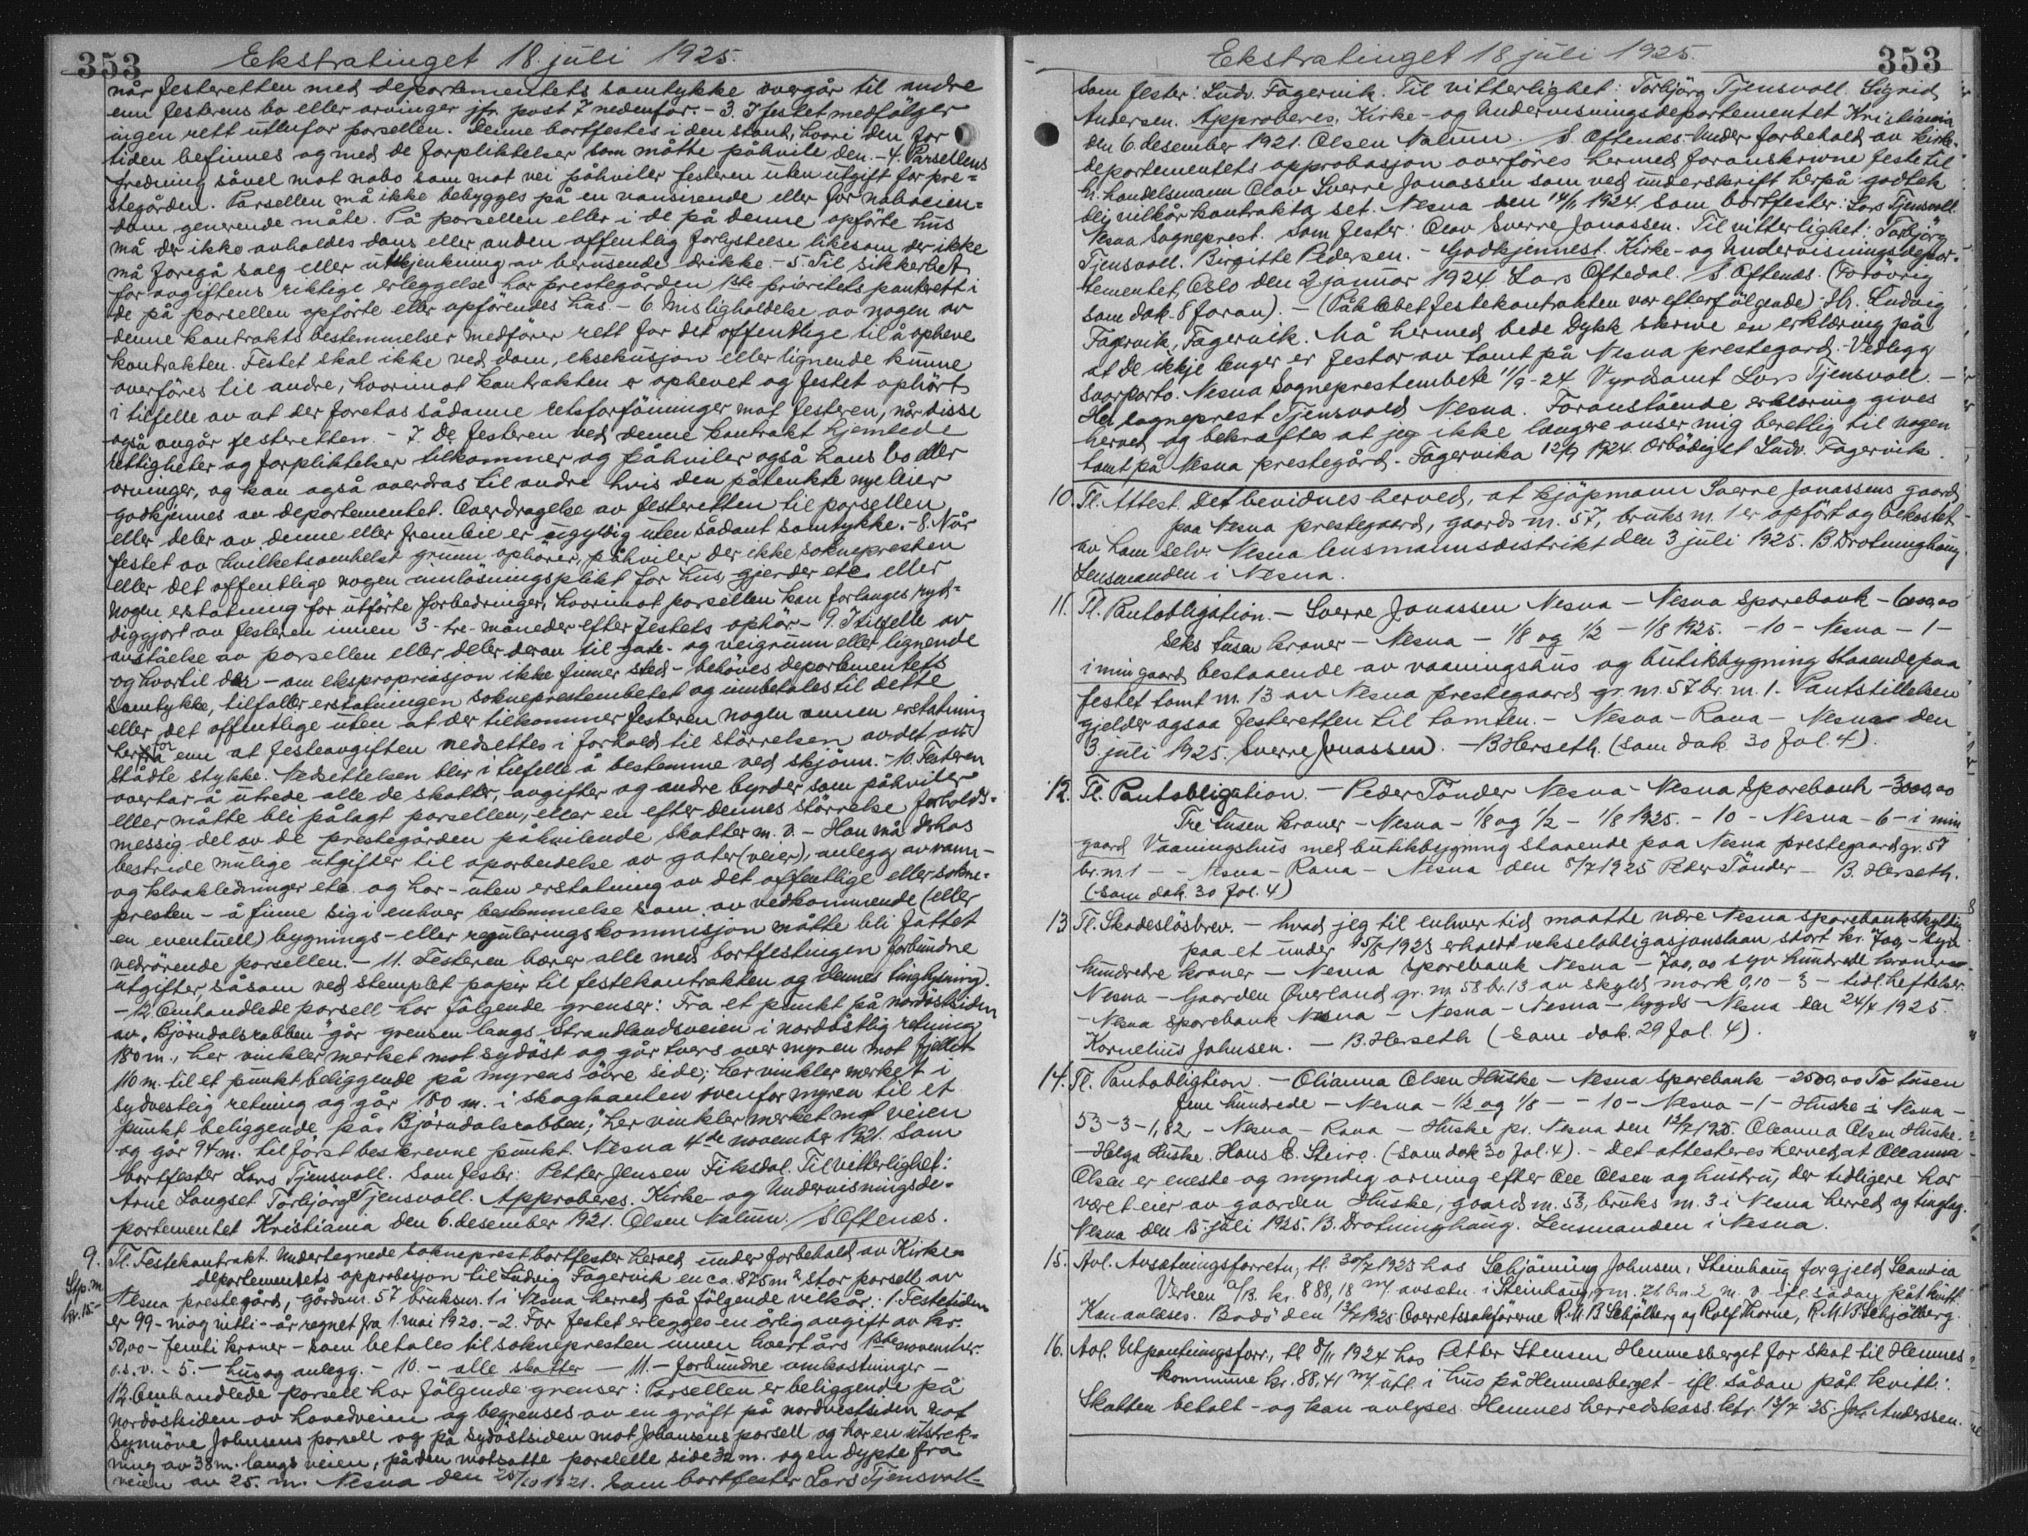 353 Ekstratinget 18 juli 1925.
når festeretten med departementets samtykke overgår til andre
enn festerens bo eller arvinger jfr. post 7 nedenfor. - 3. I festet medfölger
ingen rett utenfor parsellen. Denne bortfestes i den stand, hvori den for
tiden befinnes og med de forpliktelser som måtte påhvile den. - 4. Parsellens
fredning såvel mot nabo som mot vei påhviler festeren uten utgift for pre-
stegården. Parsellen må ikke bebygges på en vansirende eller for naboeien-
dom generende måte. På parsellen eller i de på denne opförte hus
må der ikke avholdes dans eller anden offentlig forlystelse likesom der ikke
må foregå salg eller utskjenkning av berusende drikke. - 5. Til sikkerhet
for avgiftens riktige erleggelse har prestegården 1ste prioritets panterett i
de på parsellen opförte eller opförendes hus. - 6 Misligholdelse av nogen av
denne kontrakts bestemmelser medförer rett for det offentlige til å opheve
kontrakten. Festet skal ikke ved dom, eksekusjon eller lignende kunne
overföres til andre, hvorimot kontrakten er ophevet og festet ophört
i tilfelle av at der foretas sådanne retsforföininger mot festeren, når disse
også angår festeretten. - 7. De festeren ved denne kontrakt hjemlede
rettigheter og forpliktelser tilkommer og påhviler også hans bo eller
arvinger, og kan også overdras til andre hvis den påtenkte nye leier
godkjennes av departementet. Overdragelse av festeretten til parsellen
eller deler av denne eller fremleie er ugyldig uten sådant samtykke. - 8. Når
festet av hvilketsomhelst grunn ophörer, påhviler der ikke soknepresten
eller det offentlege nogen innlösningsplikt for hus, gjerder etc. eller
nogen erstatning for utförte forbedringer, hvorimot parsellen kan forlanges ryd-
diggjort av festeren innen 3 - tre - måneder efter festets ophör. - 9. I tilfelle av
avståelse av parsellen eller deler derav til gate- og veigrunn eller lignende
og hvortil der - om ekspropriasjon ikke finner sted - behöves departementets
samtykke, tilfaller erstatningen sokneprestembetet og innbetales til dette
eller det offentlige uten at der tilkommer festeren nogen annen erstatning
herfor enn at festeavgiften nedsettes i forhold til störrelsen av det av-
stådte stykke. Nedsettelsen blir i tilfelle å bestemme ved skjönn. - 10. Festeren
overtar å utrede alle de skatter, avgifter og andre byrder som påhviler
eller måtte bli pålagt parsellen, eller en efter dennes störrelse forholds-
messig del av de prestegården påhvilende skatter m. v. - Han må derhos
bestride mulige utgifter til oparbeidelse av gater (veier), anlegg av vann-
og kloakledninger etc. og har - uten erstatning av det offentlige eller sokne-
presten - å finne sig i enhver bestemmelse som av vedkommende (eller
en eventuell) bygnings- eller reguleringskommisjon måtte bli fattet
vedrörende parsellen. - 11. Festeren bærer alle med bortfestingen forbundne
utgifter såsom ved stemplet papir til festekontrakten og dennes tinglysning.
- 12. Omhandlede parsell har fölgende grenser: Fra et punkt på nordöstsiden
av "Björndalsrabben" går grensen langs Strandlandsveien i nordöstlig retning
180 m., her vinkler merket mot sydöst og går tvers over myren mot fjellet
110 m. til et punkt beliggende på myrens övre side; her vinkler merket i
sydvestlig retning og går 180 m. i skogkanten ovenfor myren til et
punkt beliggende på "Björndalsrabben"; her vinkler merket mot veien
og går 94 m. til först beskrevne punkt. Nesna 4de november 1921. Som
bortfester Lars Tjensvoll. Som fester: Petter Jensen Fiksdal. Til vitterlighet:
Arne Langset. Torbjörg Tjensvoll. Approberes. Kirke- og Undervisningsde-
partementet Kristiania den 6. desember 1921. Olsen Nalum. / S. Oftenæs.
9. Tl. Festekontrakt. Undertegnede sokneprest bortfester herved under forbehold av Kirke-
Stp. m. departementets approbasjon til Ludvig Fagervik en ca. 875 m² stor parsell av
kr. 15.- Nesna prestegård, gårdsnr. 57 bruksnr. 1 i Nesna herred på fölgende vilkår: 1. Festetiden
er 99 - niog nitti - år regnet fra 1. mai 1920. - 2. For festet erlegges en årlig avgift av kr.
50,00 - femti kroner - som betales til soknepresten innen hvert års 1ste november
o. s. v. - 5. - hus og anlegg. - 10. - alle skatter - 11. - forbundne omkostninger -
12. Omhandlede parsell har fölgende grenser: Parsellen er beliggende på
nordöstsiden av hovedveien og begrenses av en gröft på nordvestsiden mot
Synnöve Johnsens parsell og på sydöstsiden mot Johansens parsell og har en utstrek-
ning av 38 m. langs veien, på den motsatte parallelle side 32 m. og en dypte fra
veien av 25. m. Nesna den 25/10 1921. Som bortfester Lars Tjensvoll
Ekstratinget 18 juli 1925. 353
Som fester: Ludv. Fagervik. Til vitterlighet: Torbjörg Tjensvoll. Sigrid
Andersen. Approberes, Kirke- og Undervisningsdepartementet Kristiania
den 6. desember 1921. Olsen Nalum / S. Oftenæs. Under forbehold av Kirke-
departementets approbasjon overföres hermed foranskrevne feste til
hr. handelsmann Olav Sverre Jonassen som ved underskrift herpå godtek
dei vilkår kontrakta set. Nesna den 14/11 1924. som bortfester: Lars Tjensvoll
Nesna Sogneprest. Som fester: Olav Sverre Jonassen. Til vitterlighet: Torbjörg
Tjensvoll. Birgitte Pedersen. - Godkjennest. Kirke- og Undervisningsdepar-
tementet, Oslo den 2 januar 1924 Lars Oftedal. / S Oftenæs. (Forövrig
som dok. 8 foran). - (Påheftet festekontrakten var efterfölgende): Hr. Ludvig
Fagervik, Fagervik. Må hermed bede Dykk skrive en erklæring på
at De ikkje lenger er festar av tomt på Nesna prestegard. - Vedlegg
svarporto. Nesna Sogneprestembete 11/9-24. Vyrdsamt Lars Tjensvoll. -
Hr. Sogneprest Tjensvold Nesna. Foranstående erklæring gives
herved og bekræftes at jeg ikke længere anser mig berettig til nogen
tomt på Nesna prestegård. Fagervika 12/9 1924. Ærbödigst Ludv. Fagervik.
10. Tl. Attest. Det bevidnes herved, at kjöpmann Sverre Jonassens gaard,
paa Nesna prestegaard, gaards nr. 57, bruks nr. 1 er opfört og bekostet
av ham selv. Nesna lensmannsdistrikt den 3 juli 1925. B. Drotninghaug
Lensmanden i Nesna.
11. Tl. Pantobligation. - Sverre Jonassen Nesna - Nesna Sparebank - 6000,00
seks tusen kroner - Nesna - 1/8 og 1/2 - 1/8 1925. - 10 - Nesna - 1 -
i min gaard bestaaende av vaaningshus og butikbygning staaende paa
festet tomt nr. 13 av Nesna prestegaard gr. nr. 57 br. nr. 1. Pantstillelsen
gjelder ogsaa festeretten til tomten. - Nesna - Rana - Nesna den
3 juli 1925. Sverre Jonassen). - B Herseth. (som dok. 30 fol. 4).
12. Tl. Pantobligation. - Peder Tönder Nesna - Nesna Sparebank - 3000,00
Tre tusen kroner - Nesna - 1/8 og 1/2 - 1/8 1925. - 10 - Nesna - 6 - i min
gaard Vaaningshus med butikbygning staaende paa Nesna prestegaard gr. 57
br. nr. 1 - - Nesna - Rana - Nesna den 8/7 1925 Peder Tönder - B. Herseth.
(som dok. 30 fol. 4)
13 Tl. Skadeslösbrev. - hvad jeg til enhver tid maatte være Nesna Sparebank skyldig
paa et under 15/5 1923 erholdt vekselobligasjonslaan stort kr. 700,- syv
hundredre kroner - Nesna Sparebank Nesna - 700,00 syv hundrede kroner
Nesna - Gaarden Överland gr. nr. 58 br. 13 av skyld mark 0,10 - 3 - tidl. heftelser
- Nesna Sparebank Nesna - Nesna - Nesna - bygds - Nesna den 24/4 1925.
Kornelius Johnsen. - B. Herseth (som dok. 29 fol. 4).
14. Tl. Pantobligtion. - Olianna Olsen Huske - Nesna Sparebank - 2500,00 To tusen
fem hundrede - Nesna - 1/2 og 1/8 - - 10 - Nesna - 1 - Huske i Nesna -
53 - 3 - 1,82 - Nesna - Rana - Huske pr. Nesna den 12/7 1925. Oleanna Olsen Huske.
- Helga Huske. Hans E. Steiro. (som dok 30 fol. 4). - Det attesteres herved at Oleanna
Olsen er eneste og myndig arving efter Ole Olsen og hustru, der tidligere har
været eier av gaarden Huske, gaards nr. 53, bruks nr. 3 i Nesna herred og tinglag.
Nesna den 15 juli 1925. B. Drotninghaug. Lensmanden i Nesna.
15. Avl. Avsætningsforretn., tl. 30/7 1923 hos Schjönning Johnsen, Steinhaug for gjeld Scandia
Verken A/B. kr. 888,18 m/ avsætn. i Steinhaug, gnr. 71 br. 2 m. v. ifl. sådan påt. kvitt.
Kan avlæses. Bodö den 13/7 1925. Overretssakförerne R. M. B Schjölberg og Rolf Thorne, R. M. B. Schjölberg.
16. Avl. Utpantningsforr., tl. 8/11 1924 hos Petter Stensen Hemnesberget for skat til Hemnes
kommune kr. 88,41 m/ utl. i hus på Hemnesberget - ifl. sådan påt. kvitt.:
Skatten betalt - og kan avlyses. Hemnes herredskass. ktr. 13/7 25. Joh. Anderssen.